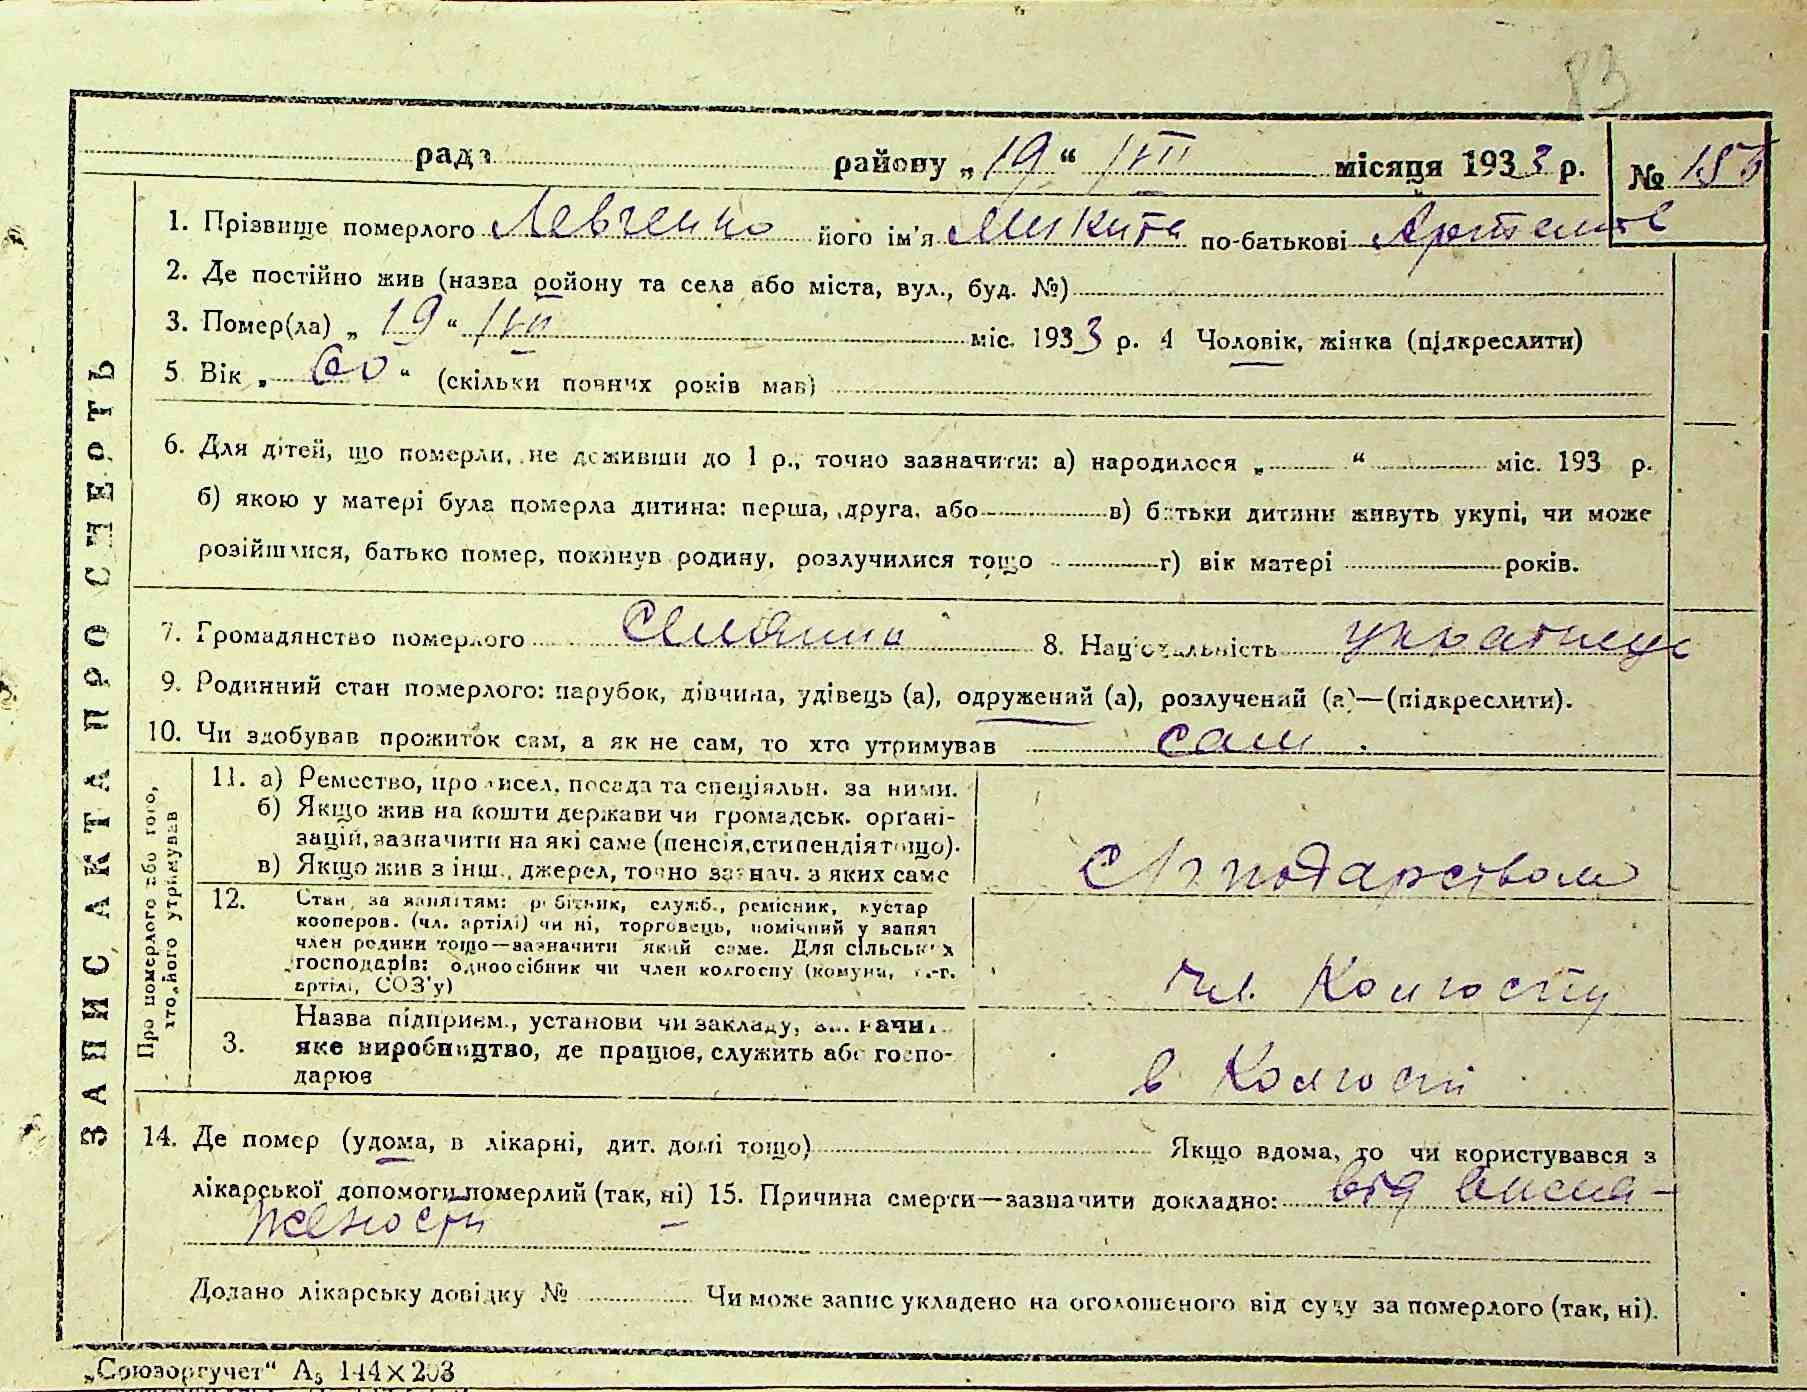 83
рада району „19“ VII місяця 1933 р. № 156
1. Прізвище померлого Левченко його ім'я Микита по-батькові Артемів
2. Де постійно жив (назва району та села або міста, вул., буд. №)
3. Помер(ла) „19“ VII міс. 1933 р. 4 Чоловік, жінка (підкреслити)
5 Вік „60“ (скільки повних років мав)
6. Для дітей, що померли, не доживши до 1 р., точно зазначити: а) народилося „ “ міс. 193 р.
б) якою у матері була померла дитина: перша, друга, або в) батьки дитини живуть укупі, чи може
розійшлися, батько помер, покинув родину, розлучилися тощо г) вік матері років.
7. Громадянство померлого селянин 8. Національність українець
9. Родинний стан померлого: парубок, дівчина, удівець (а), одружений (а), розлучений (а)—(підкреслити).
10. Чи здобував прожиток сам, а як не сам, то хто утримував сам
ЗАПИС АКТА ПРО СМЕРТЬ
Про померлого або того, хто його утримував
11. а) Ремество, промисел, посада та спеціяльн. за ними.
б) Якщо жив на кошти держави чи громадськ. органі-
зацій, зазначити на які саме (пенсія, стипендія тощо).
в) Якщо жив з інш., джерел, точно зазнач. з яких саме
Сг господарством
12. Стан за заняттям: робітник, служб., ремісник, кустар
кооперов. (чл. артілі) чи ні, торговець, помічний у занят
член родини тощо—зазначити який саме. Для сільських
господарів: одноосібник чи член колгоспу (комуни, с.-г.
артілі, СОЗ'у)
чл. Колгоспу
3. Назва підприєм., установи чи закладу, зазначит.
яке виробництво, де працює, служить або госпо-
дарює
в Колгоспі
14. Де помер (удома, в лікарні, дит. домі тощо) Якщо вдома, то чи користувався з
лікарської допомоги померлий (так, ні) 15. Причина смерти—зазначити докладно: від висна-
женості
Додано лікарську довідку № Чи може запис укладено на оголошеного від суду за померлого (так, ні).
„Союзоргучет“ А₅ 144×203